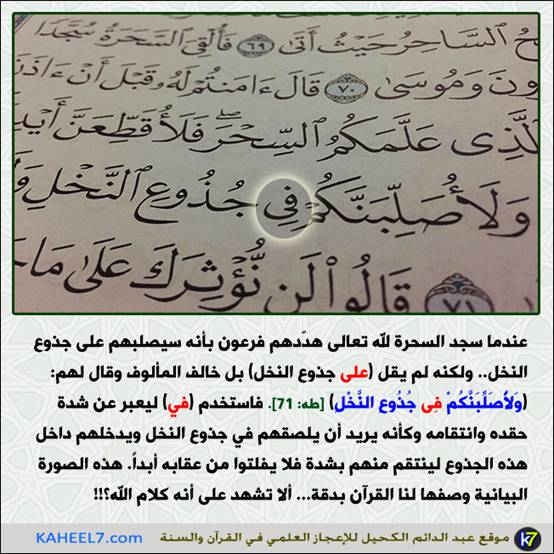 حُ ٱلسَّاحِرُ حَيْثُ أَتَىٰ ٦٩ فَأُلْقِىَ ٱلسَّحَرَةُ سُجَّدًا
ونَ وَمُوسَىٰ ٧٠ قَالَ ءَامَنتُمْ لَهُۥ قَبْلَ أَنْ ءَاذَنَ
لَّذِى عَلَّمَكُمُ ٱلسِّحْرَ ۖ فَلَأُقَطِّعَنَّ أَيْدِ
وَلَأُصَلِّبَنَّكُمْ فِى جُذُوعِ ٱلنَّخْلِ وَ
٧١ قَالُوا۟ لَن نُّؤْثِرَكَ عَلَىٰ مَا جَا
عندما سجد السحرة لله تعالى هدّدهم فرعون بأنه سيصلبهم على جذوع
النخل.. ولكنه لم يقل (على جذوع النخل) بل خالف المألوف وقال لهم:
(وَلَأُصَلِّبَنَّكُمْ فِي جُذُوعِ النَّخْلِ) [طه: 71]. فاستخدم (في) ليعبر عن شدة
حقده وانتقامه وكأنه يريد أن يلصقهم في جذوع النخل ويدخلهم داخل
هذه الجذوع لينتقم منهم بشدة فلا يفلتوا من عقابه أبداً. هذه الصورة
البيانية وصفها لنا القرآن بدقة... ألا تشهد على أنه كلام الله؟!!
موقع عبد الدائم الكحيل للإعجاز العلمي في القرآن والسنة KAHEEL7.com
k7